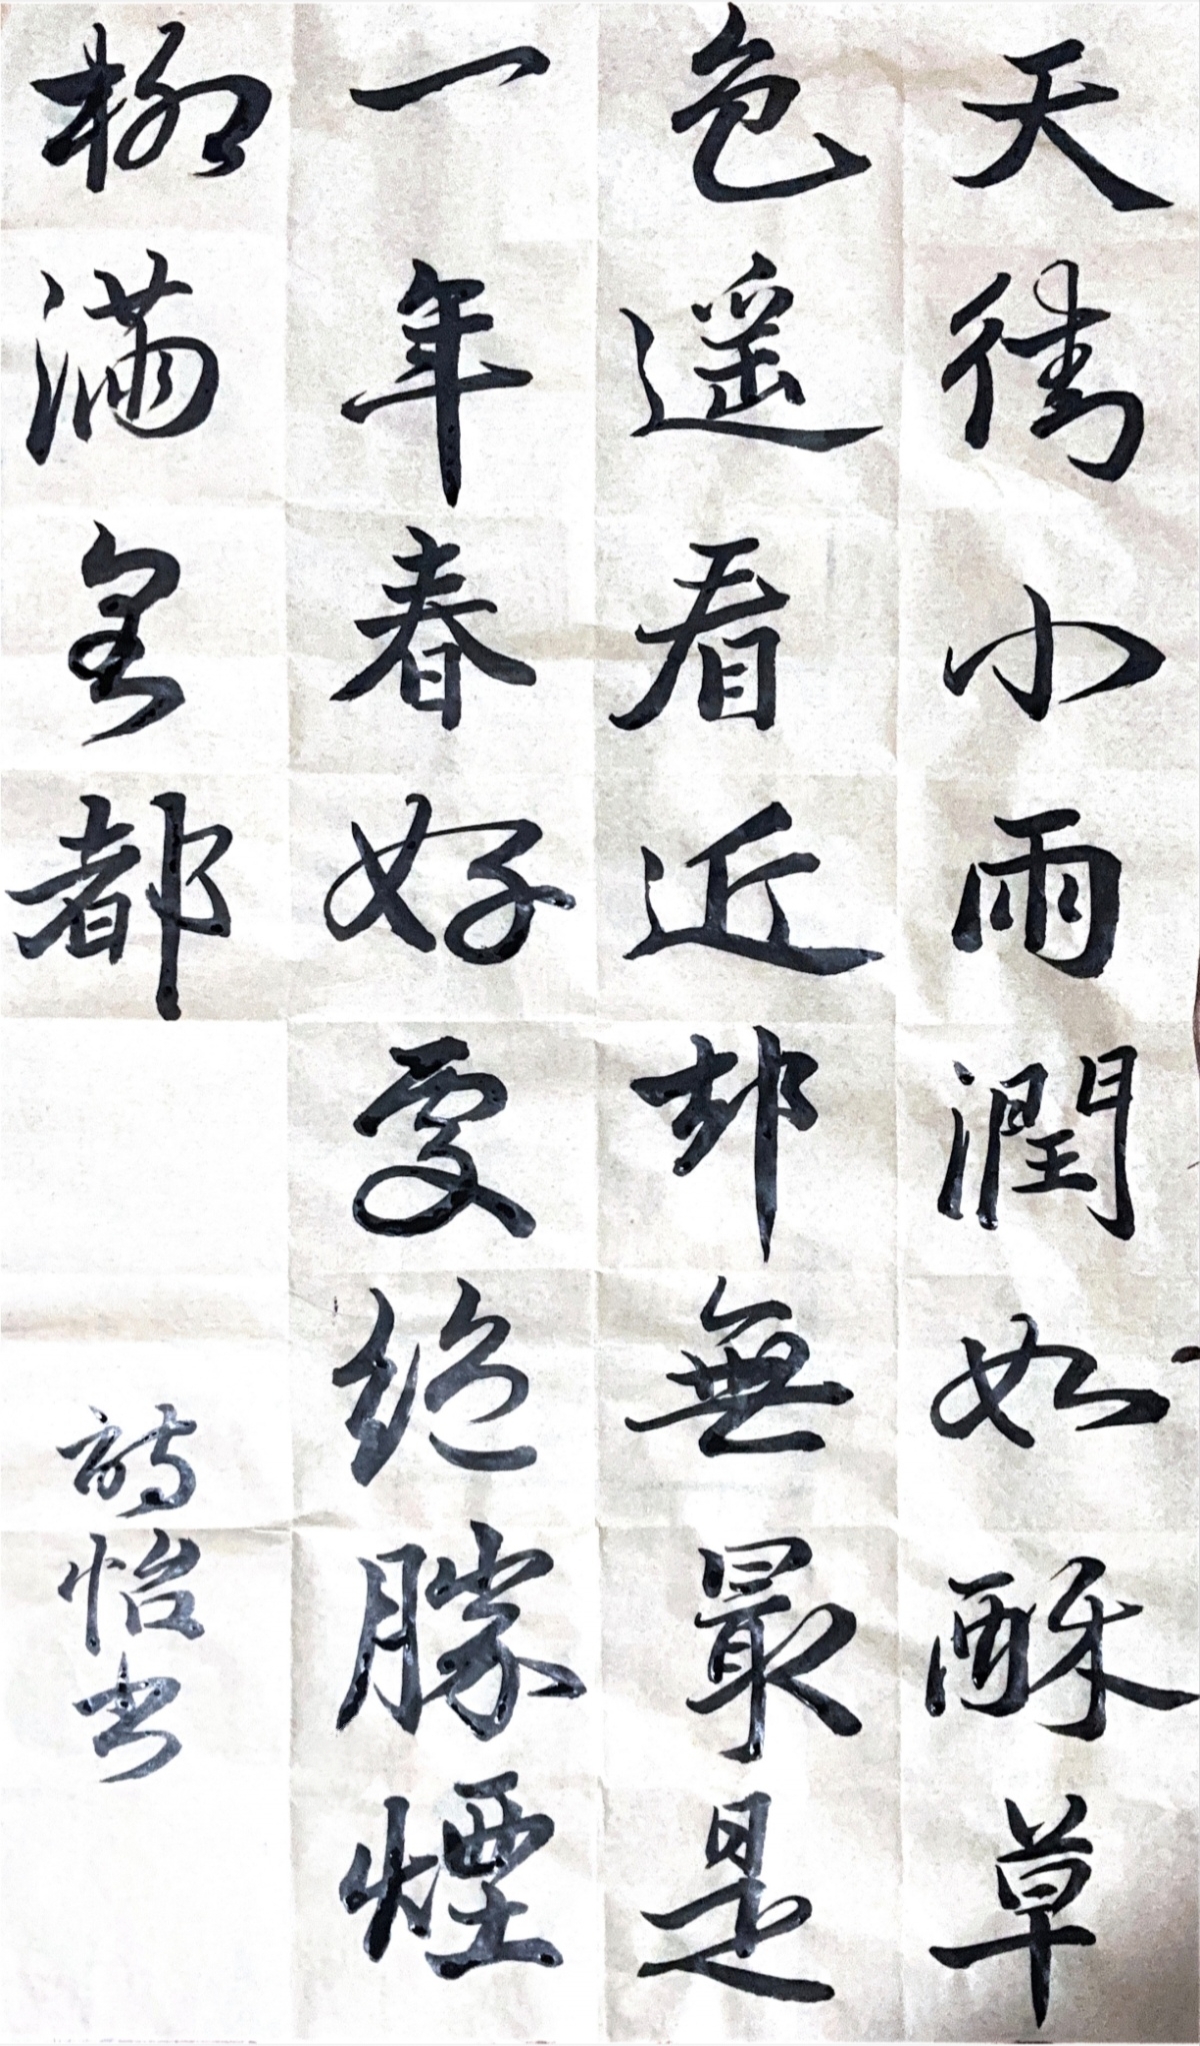 天街小雨潤如酥草
色遥看近却無最是
一年春好處絶勝煙
柳滿皇都
詩怡书